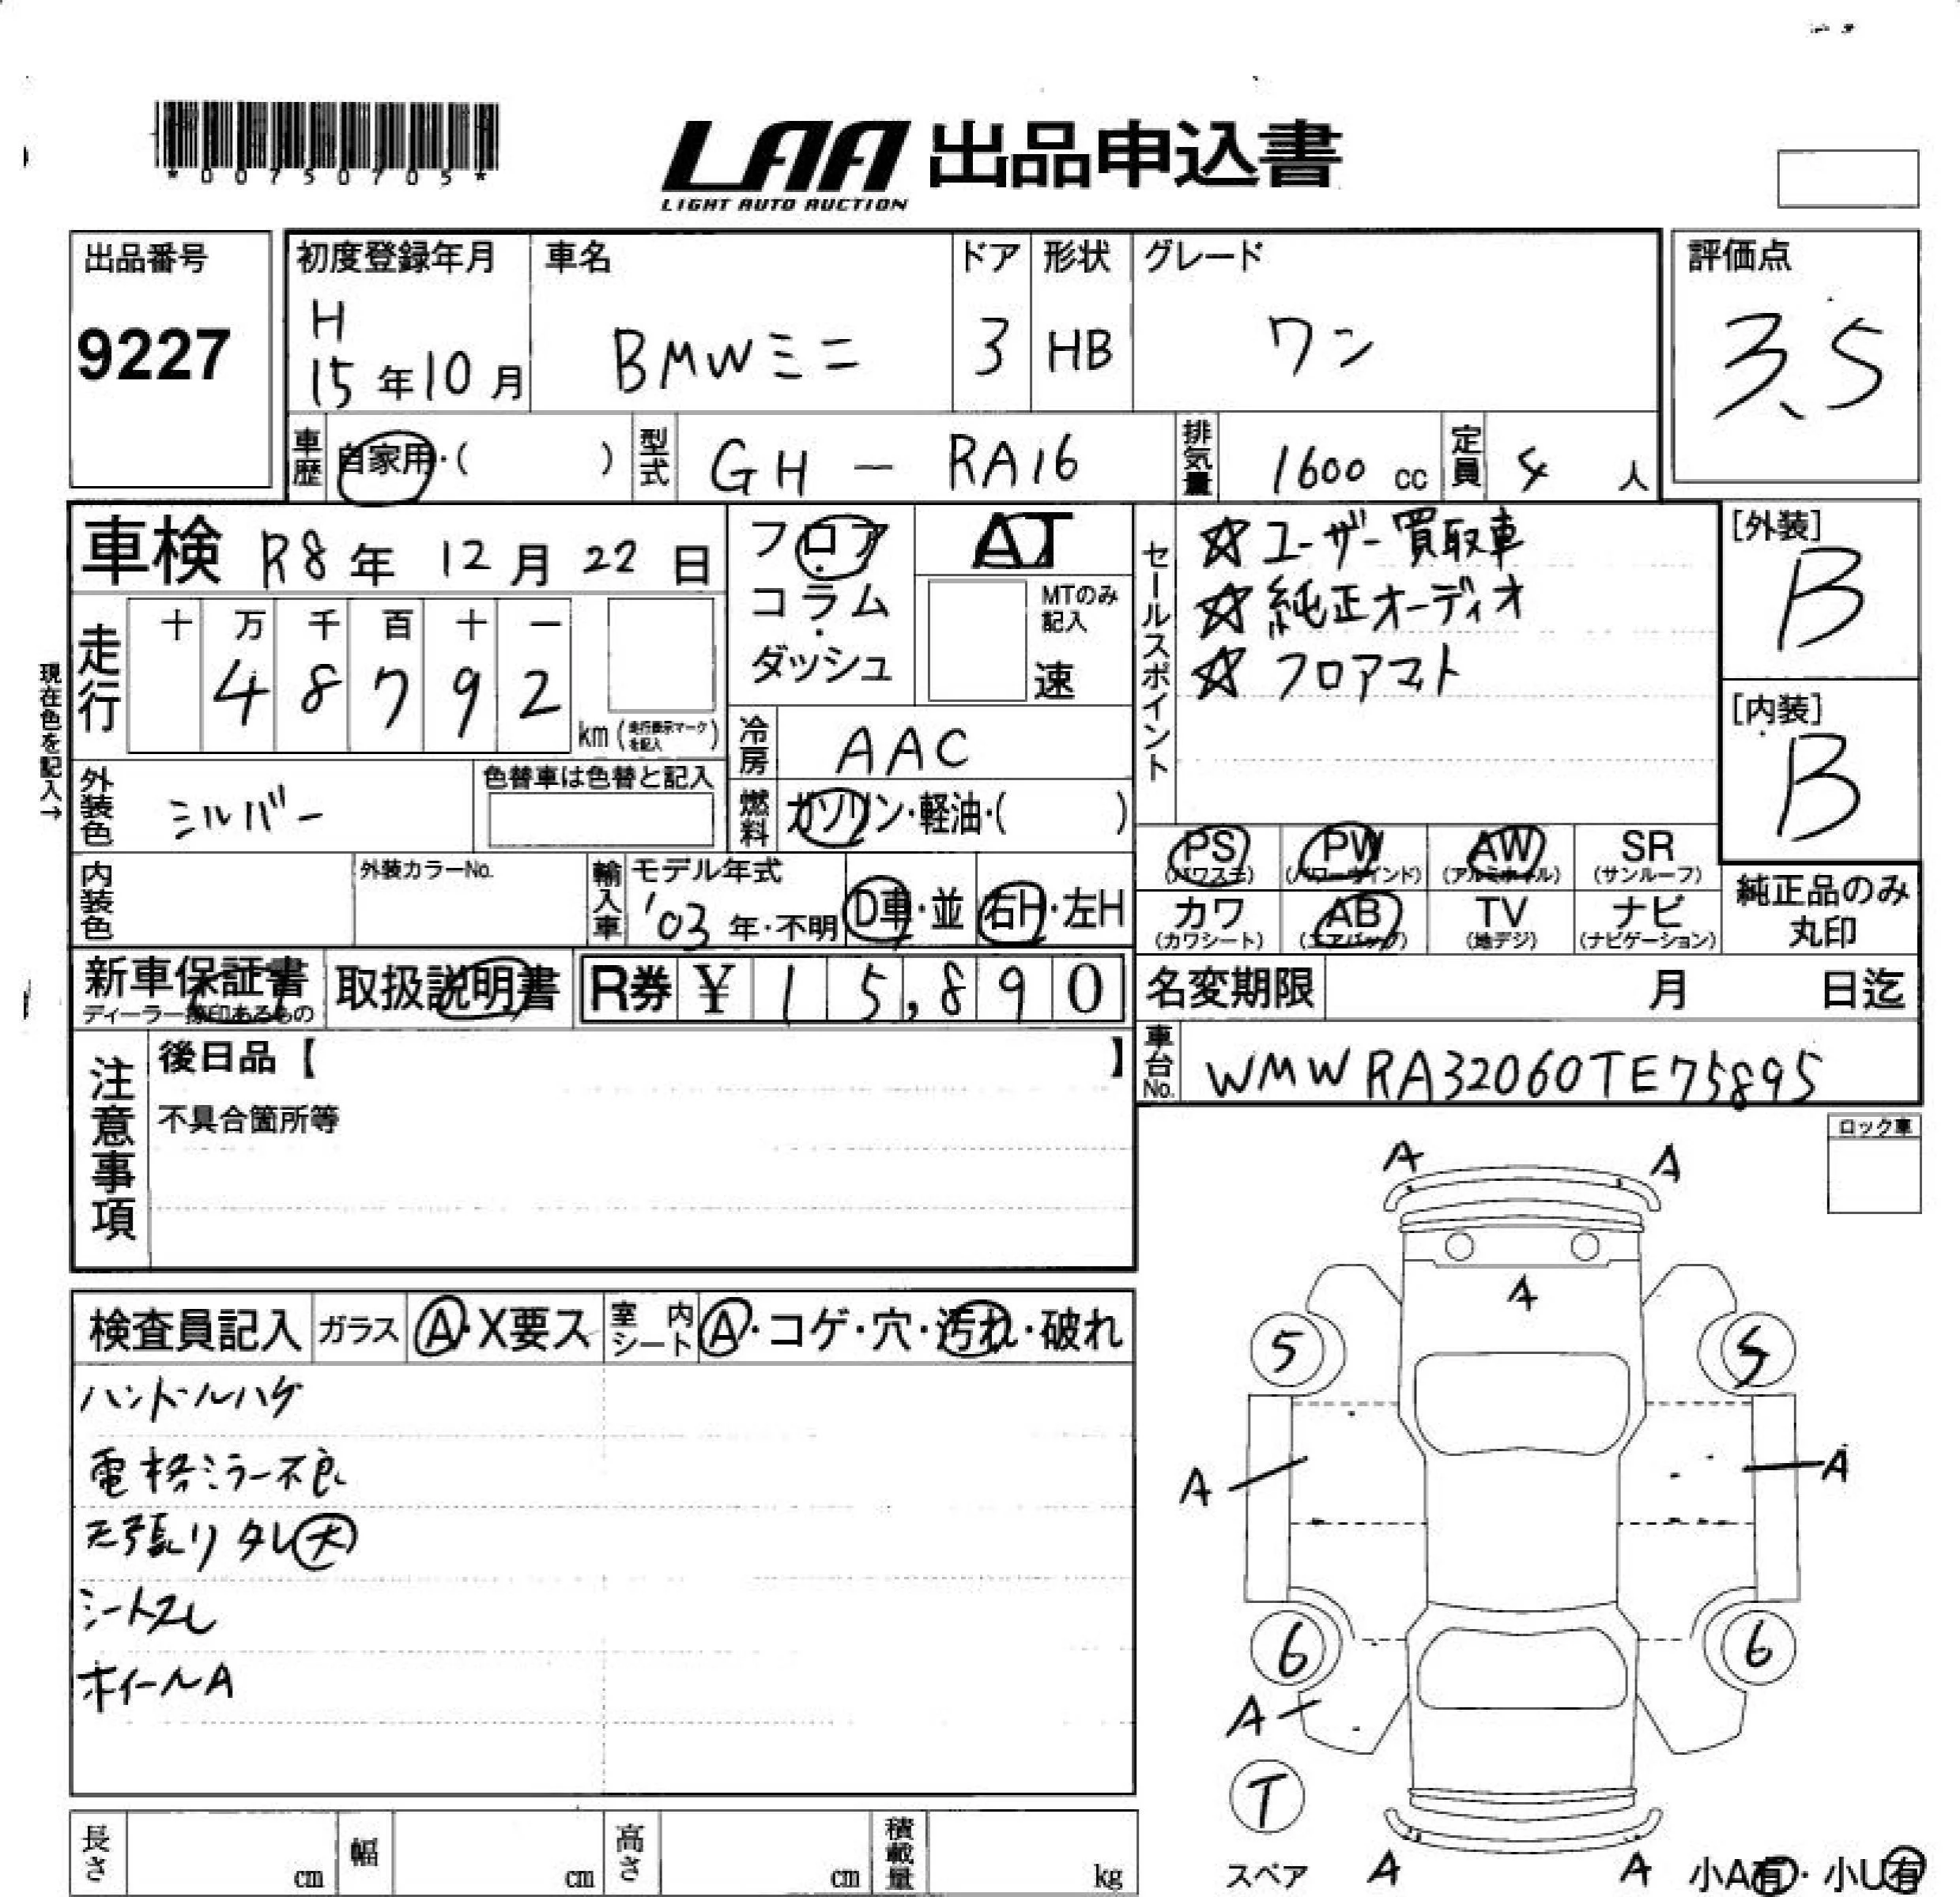 *00750705*
LAA 出品申込書
LIGHT AUTO AUCTION
出品番号
9227
初度登録年月
H
15年10月
車名
BMWミニ
ドア
3
形状
HB
グレード
ワン
評価点
3.5
車歴 自家用・( )
型式 GH - RA16
排気量 1600 cc
定員 4 人
車検 R8年 12月 22日
現在色を記入→
走行
十 万 千 百 十 一
4 8 7 9 2
km (走行表示マークを記入)
フロア
コラム
・
ダッシュ
AT
MTのみ
記入
速
冷房 AAC
燃料 ガソリン・軽油・( )
セールスポイント
☆ユーザー買取車
☆純正オーディオ
☆フロアマト
[外装]
B
[内装]
B
外装色 シルバー
色替車は色替と記入
内装色
外装カラーNo.
輸入車
モデル年式
'03年・不明
D車・並
右H・左H
PS
(パワステ)
PW
(パワーウインド)
AW
(アルミホイル)
SR
(サンルーフ)
カワ
(カワシート)
AB
(エアバッグ)
TV
(地デジ)
ナビ
(ナビゲーション)
純正品のみ
丸印
新車保証書
ディーラー捺印あるもの
取扱説明書
R券 ¥ 15,890
名変期限 月 日迄
車台No. WMWRA32060TE75895
注意事項
後日品【 】
不具合箇所等
ロック車
検査員記入
ガラス A・X要ス
室内シート A・コゲ・穴・汚れ・破れ
ハンドルハゲ
電格ミラー不良
天張りタレ大
シートスレ
ホイールA
A A
A
5 5
A A
6 6
A
T
スペア
A A
小A有・小U有
長さ cm
幅 cm
高さ cm
積載量 kg